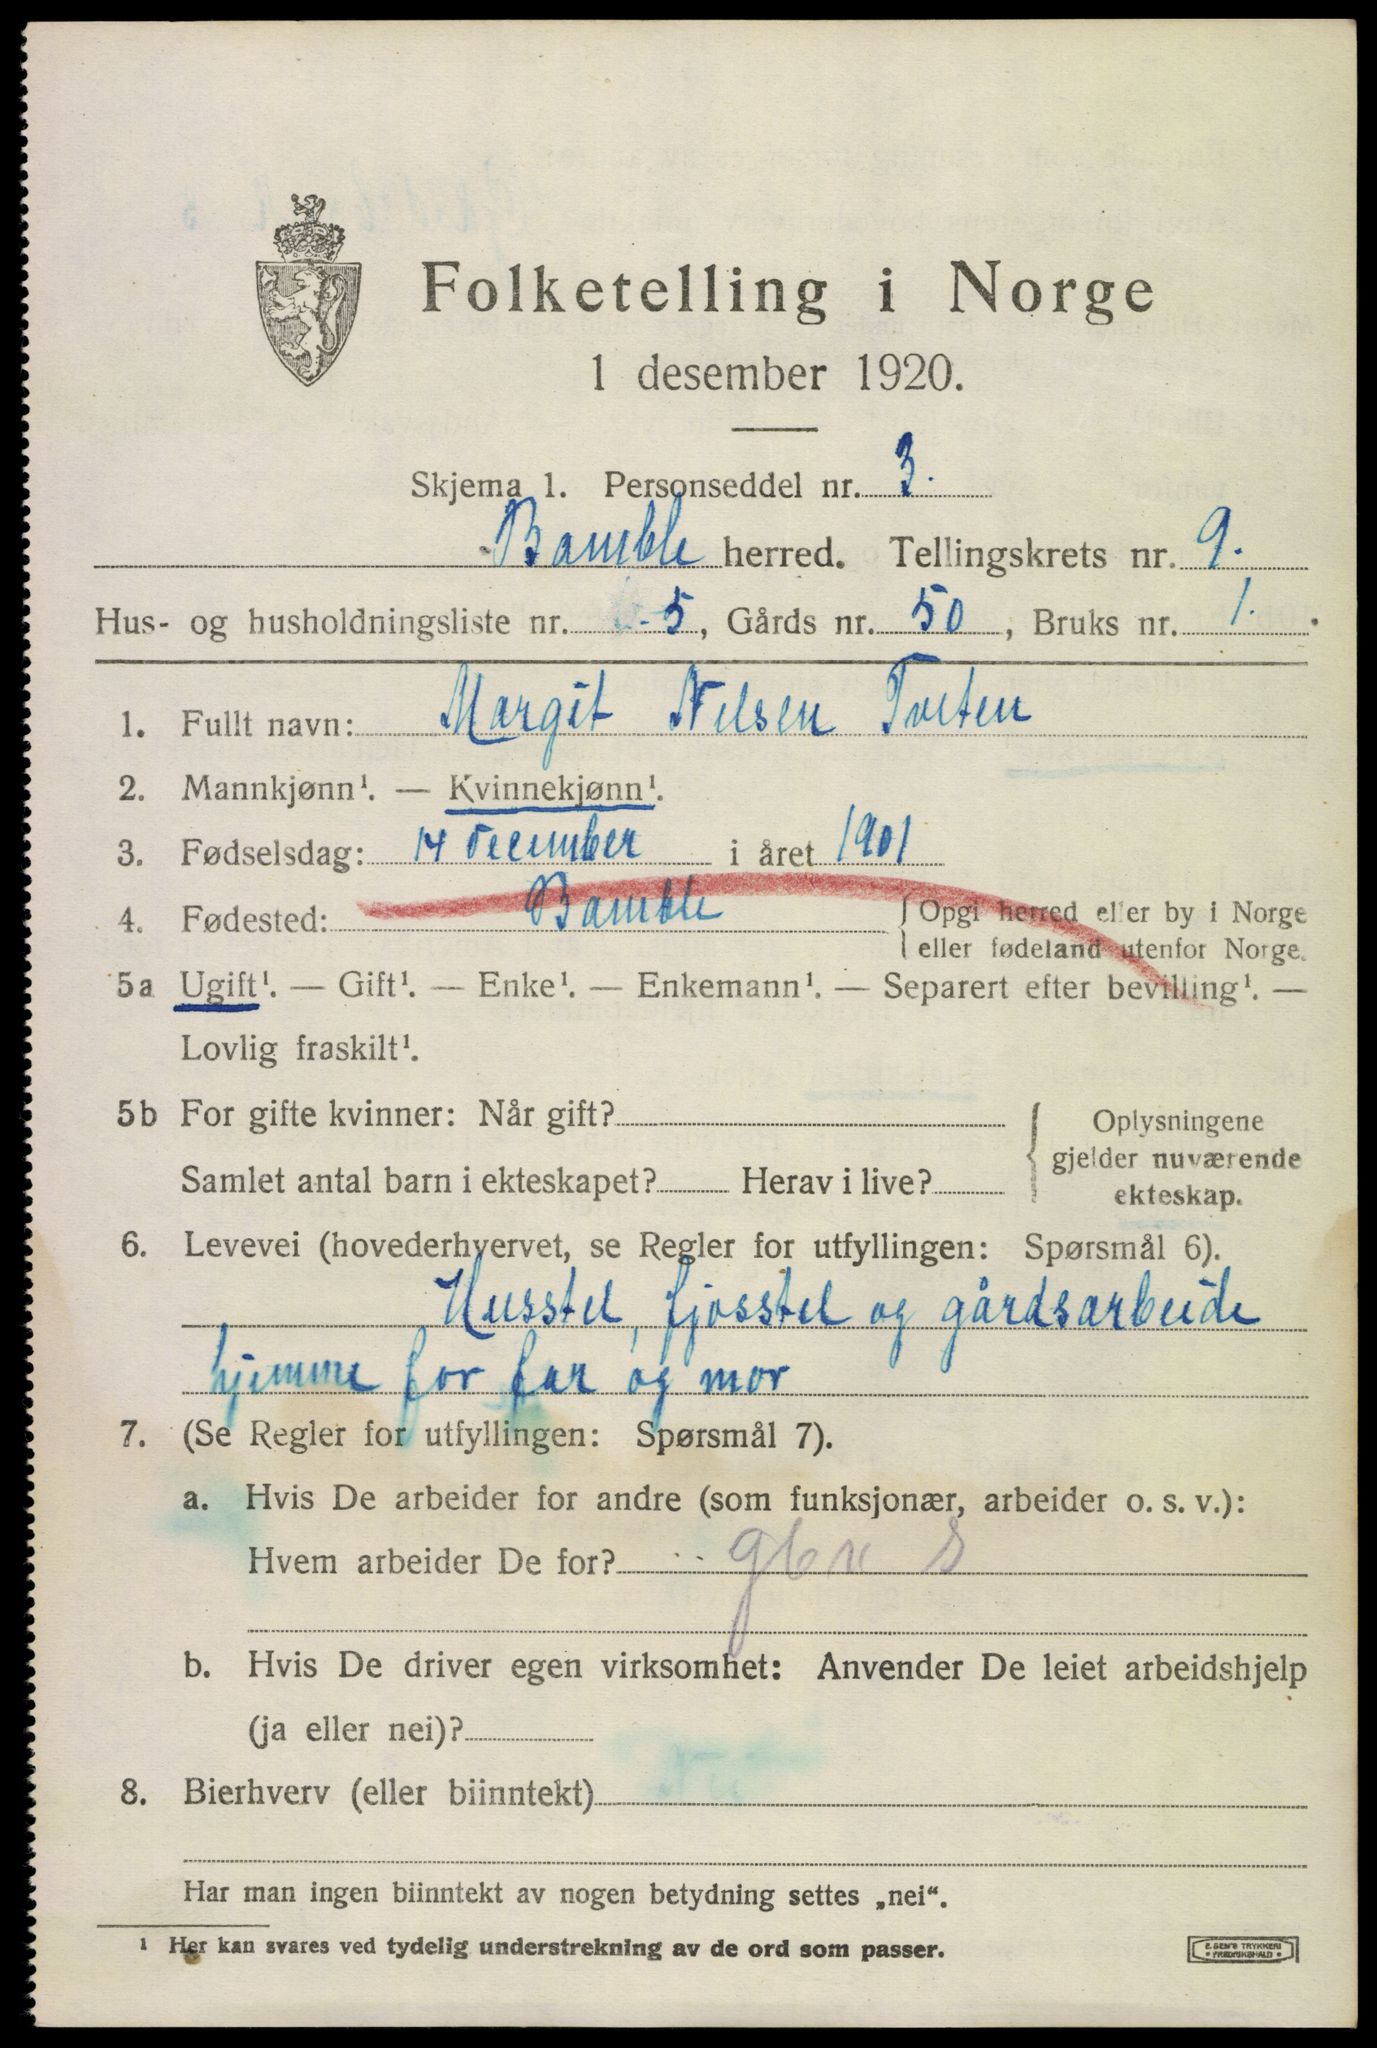 Folketelling i Norge
1 desember 1920.
Skjema 1. Personseddel nr. 3.
Bamble herred. Tellingskrets nr. 9.
Hus- og husholdningsliste nr. 5, Gårds nr. 50, Bruks nr. 1.
1. Fullt navn: Margit Nilsen Tveten
2. Mannkjønn¹. — Kvinnekjønn¹.
3. Fødselsdag: 14 december i året 1901
4. Fødested: Bamble {Opgi herred eller by i Norge
eller fødeland utenfor Norge.
5a Ugift¹. — Gift¹. — Enke¹. — Enkemann¹. — Separert efter bevilling¹. —
Lovlig fraskilt¹.
5b For gifte kvinner: Når gift? { Oplysningene
gjelder nuværende
Samlet antal barn i ekteskapet? Herav i live?
ekteskap.
6. Levevei (hovederhvervet, se Regler for utfyllingen: Spørsmål 6).
Husstel, fjosstel og gårdsarbeide
hjemme for far og mor
7. (Se Regler for utfyllingen: Spørsmål 7).
a. Hvis De arbeider for andre (som funksjonær, arbeider o. s. v.):
Hvem arbeider De for?
b. Hvis De driver egen virksomhet: Anvender De leiet arbeidshjelp
(ja eller nei)?
8. Bierhverv (eller biinntekt)
Har man ingen biinntekt av nogen betydning settes „nei“.
¹ Her kan svares ved tydelig understrekning av de ord som passer.
E. SEM'S TRYKKERI
• FREDRIKSHALD •